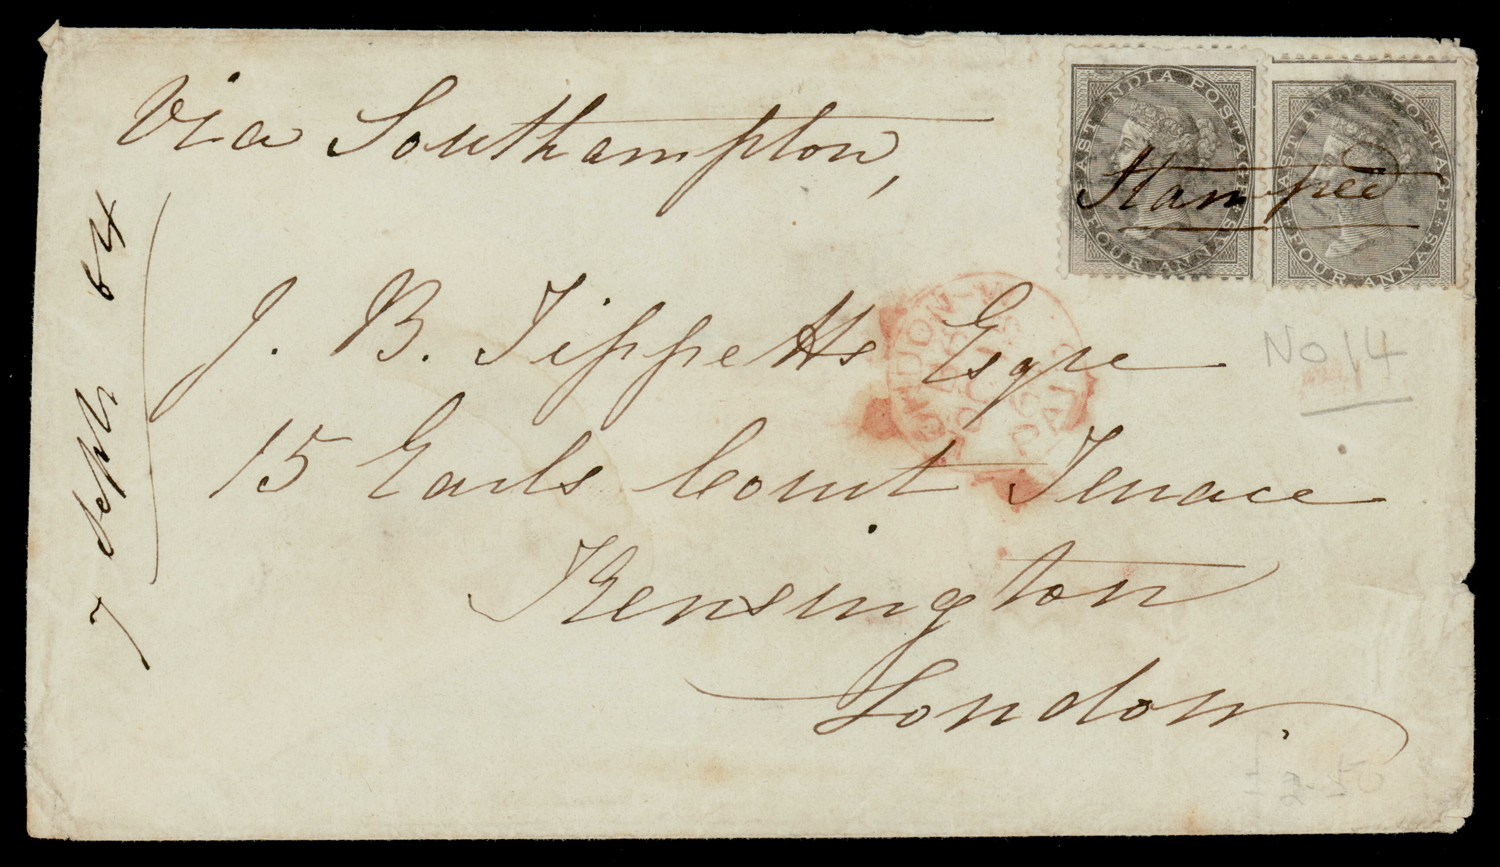 Via Southampton,
EAST INDIA POSTAGE
FOUR ANNAS
EAST INDIA POSTAGE
FOUR ANNAS
Stamped
7 Septr 64
J. B. Tippetts Esqre
15 Earls Court Terrace
Kensington
London.
LONDON
PAID
No 14
2.50